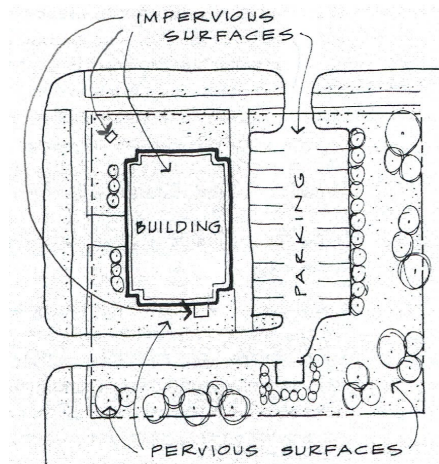 IMPERVIOUS
SURFACES
BUILDING
PARKING
PERVIOUS SURFACES